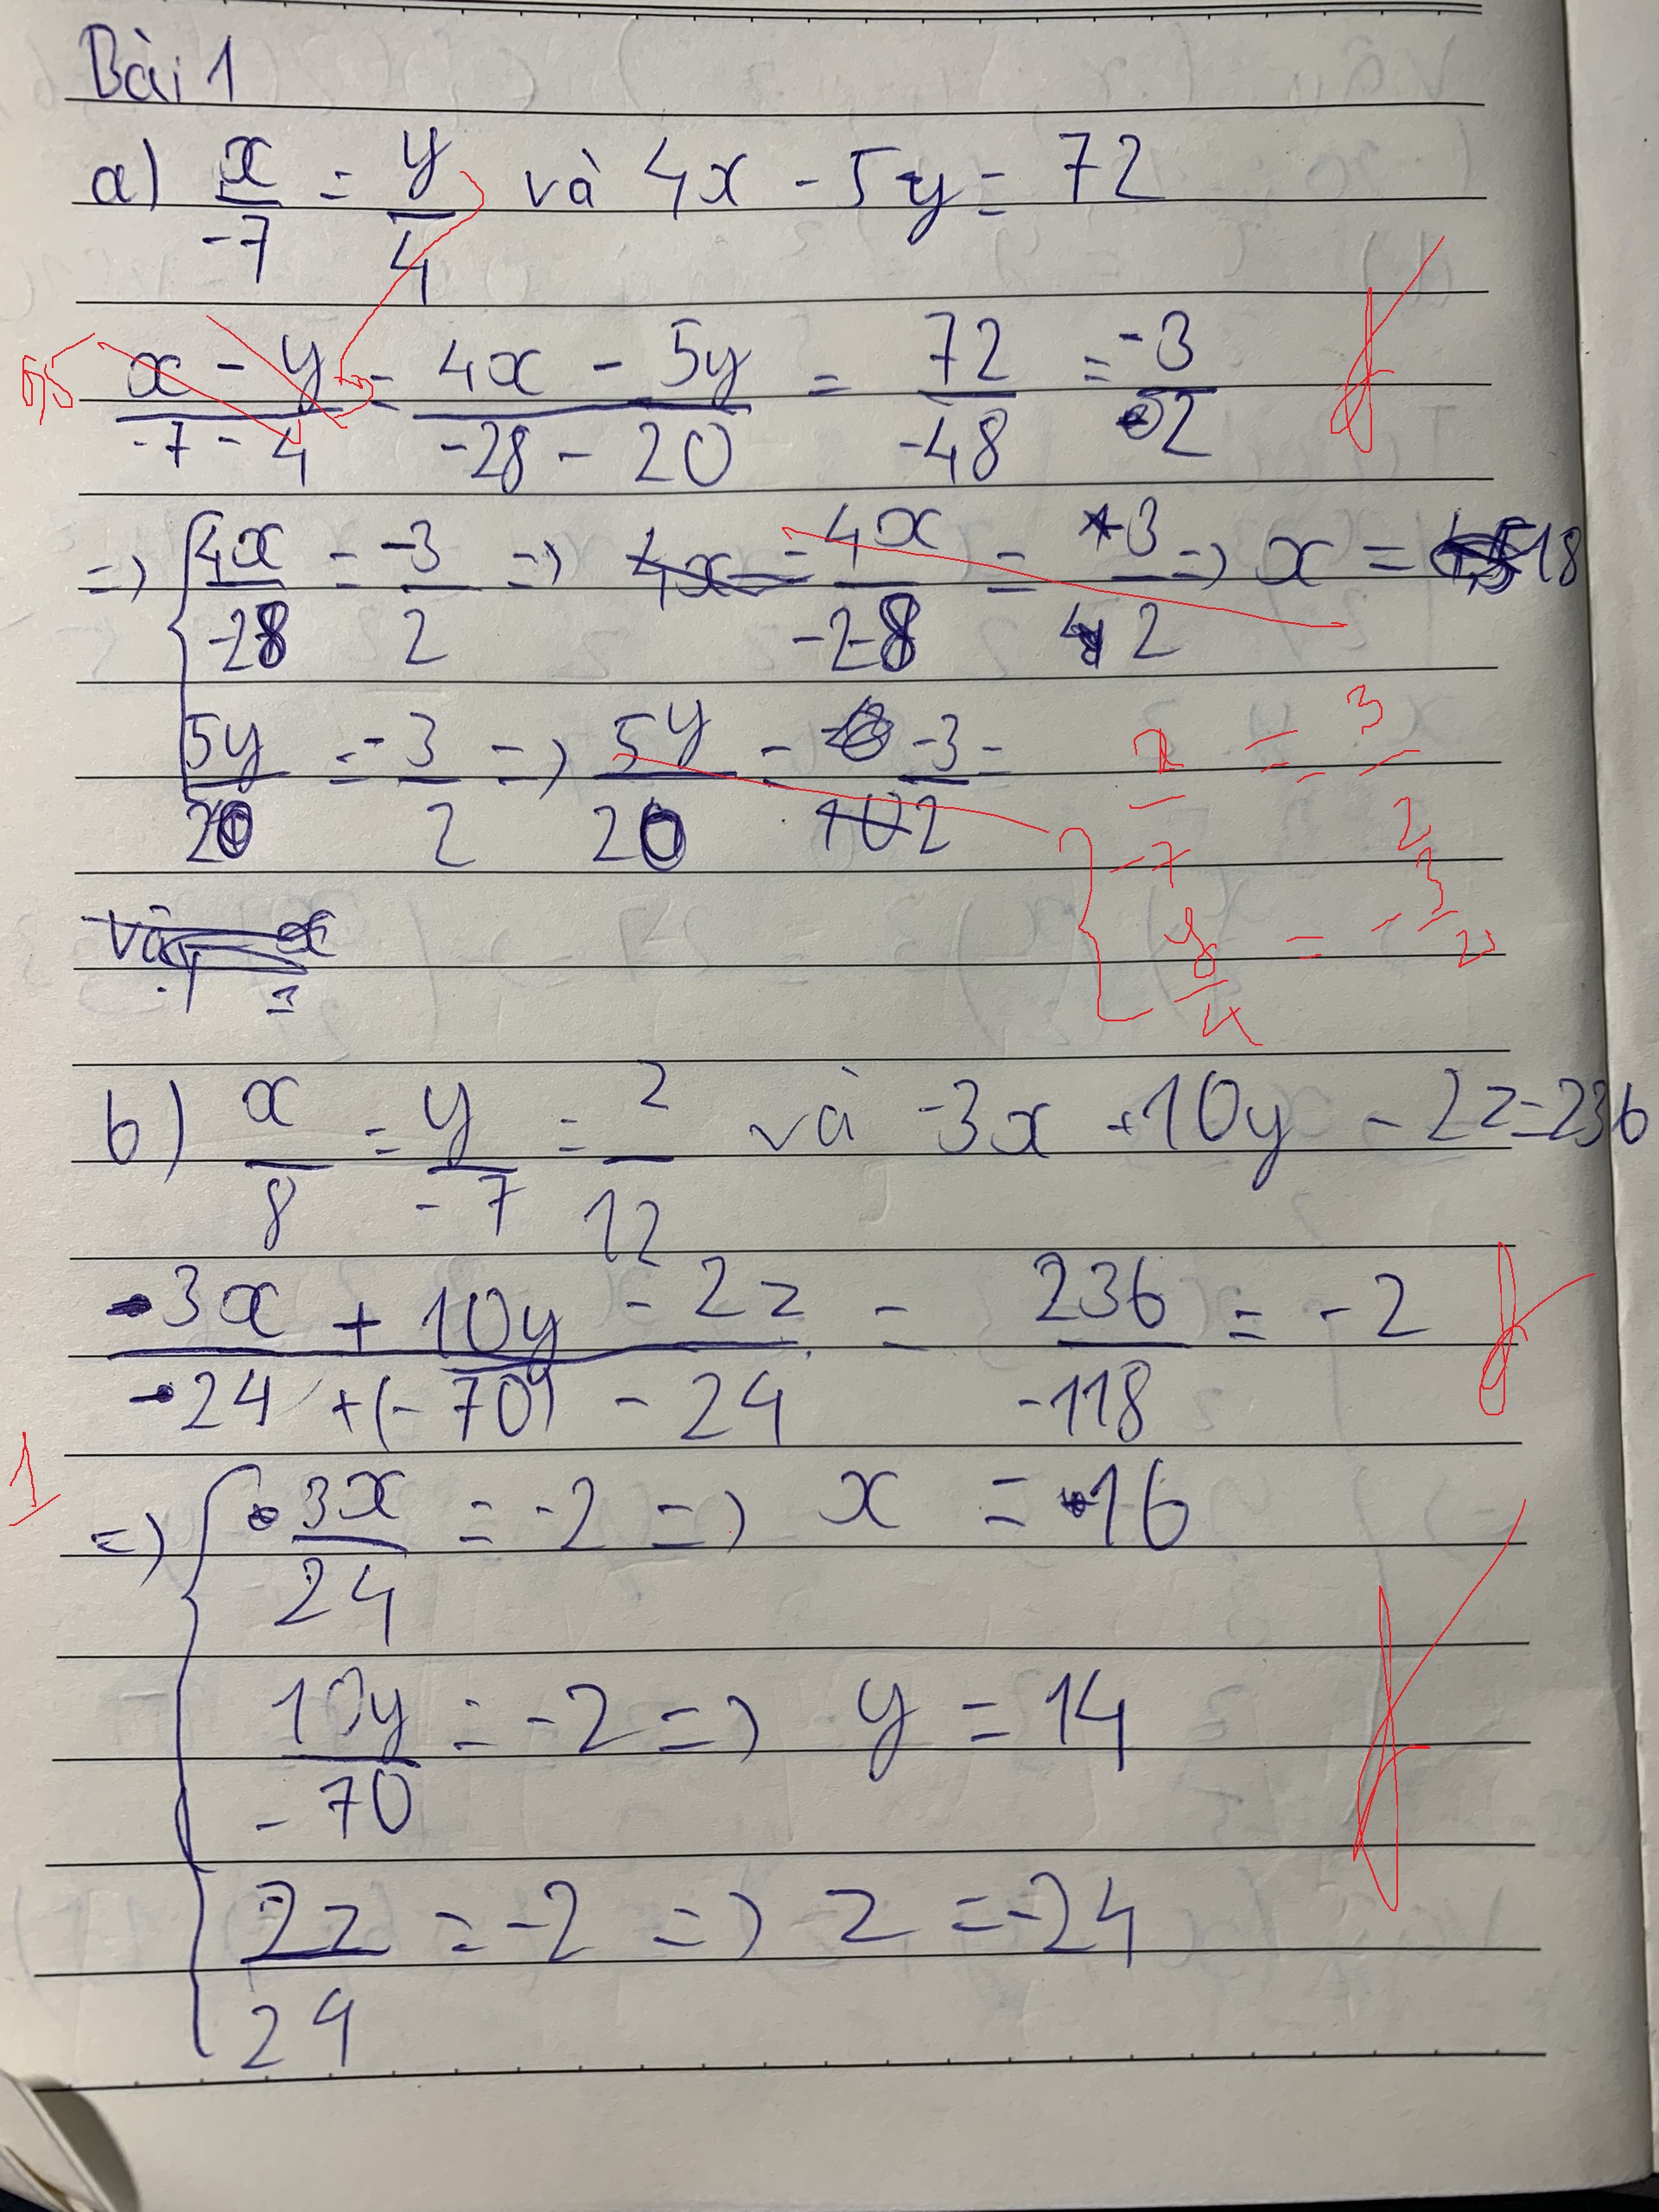 Bài 1
a) x/-7 = y/4 và 4x - 5y = 72
0,5 x - y/-7 - 4 = 4x - 5y/-28 - 20 = 72/-48 = -3/2
=> { 4x/-28 = -3/2 => 4x = 4x/-28 = -3/2 => x = 18
5y/20 = -3/2 => 5y/20 = -3/102 =
x/-7 = -3/2
Vậy x
y/4 = -3/2
=
b) x/8 = y/-7 = z/12 và -3x + 10y - 2z = 236
-3x + 10y - 2z/-24 + (-70) - 24 = 236/-118 = -2
1
=> { 3x/24 = -2 => x = -16
10y/-70 = -2 => y = 14
2z/24 = -2 => z = -24